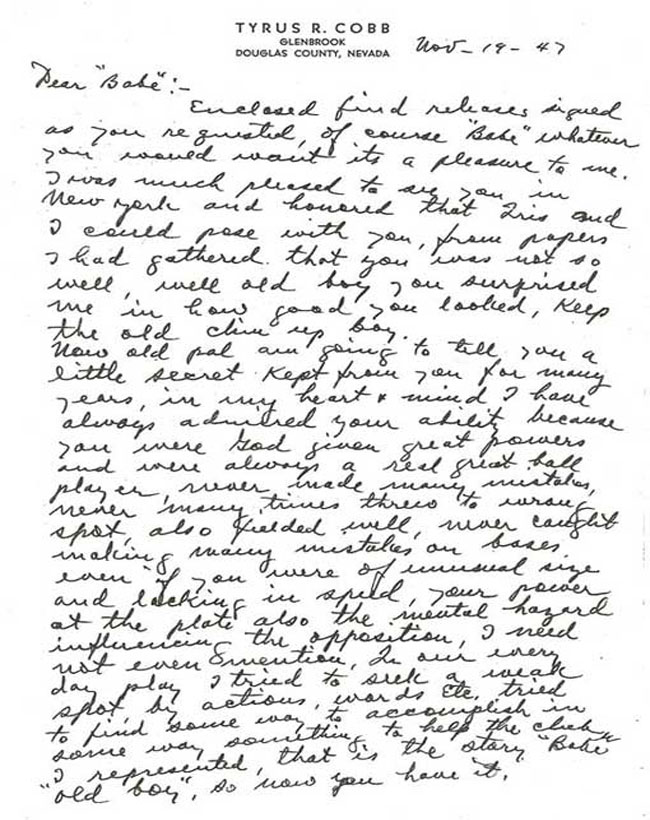 TYRUS R. COBB
GLENBROOK
DOUGLAS COUNTY, NEVADA
Nov- 19- 47
Dear "Babe":-
Enclosed find releases signed
as you requested, of course "Babe" whatever
you would want its a pleasure to me.
I was much pleased to see you in
New york and honored that Iris and
I could pose with you, from papers
I had gathered that you was not so
well, well old boy you surprised
me in how good you looked, Keep
the old chin up boy.
Now old pal am going to tell you a
little secret Kept from you for many
years, in my heart & mind I have
always admired your ability because
you were God given great powers
and were always a real great ball
player, never made many mistakes,
never many times threw to wrong
spot, also fielded well, never caught
making many mistakes on bases,
even if you were of unusual size
and lacking in speed, your power
at the plate also the mental hazard
influencing the opposition, I need
not even mention, In our every
day play I tried to seek a weak
spot by actions, words etc. tried
to find some way to accomplish in
some way something to help the club
I represented, that is the story "Babe
"old boy", so now you have it.